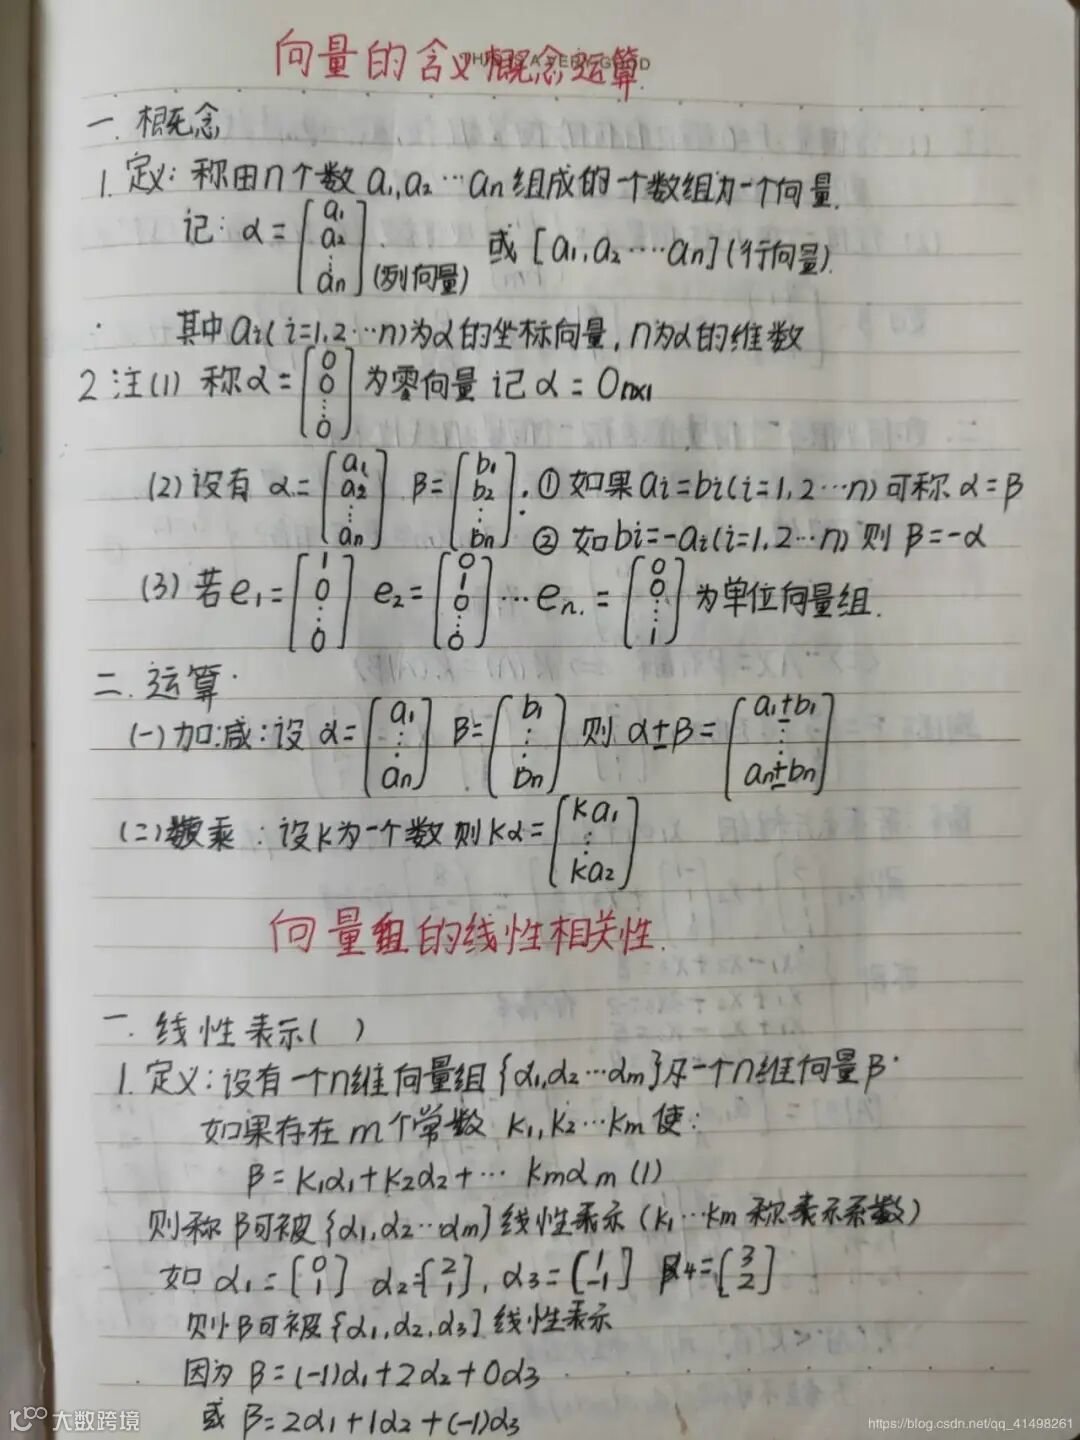 向量的含义概念运算
THIS IS A VERY GOOD
一. 概念
1. 定义: 称由n个数 a₁,a₂…an 组成的一个数组为一个向量.
记: α = [a₁ a₂ ⋮ an] (列向量) 或 [a₁,a₂……an] (行向量).
其中ai(i=1,2…n)为α的坐标向量, n为α的维数
2 注(1) 称α = [0 0 ⋮ 0] 为零向量 记 α = 0n×1
(2) 设有 α = [a₁ a₂ ⋮ an] β = [b₁ b₂ ⋮ bn]. ① 如果ai=bi(i=1,2…n)可称 α=β
② 如bi=-ai(i=1,2…n) 则 β=-α
(3) 若e₁ = [1 0 ⋮ 0] e₂ = [0 1 0 ⋮ 0] … en. = [0 0 ⋮ 1] 为单位向量组.
二. 运算
(一) 加.减: 设 α = [a₁ ⋮ an] β = [b₁ ⋮ bn] 则 α±β = [a₁±b₁ ⋮ an±bn]
(二) 数乘: 设k为一个数 则 kα = [ka₁ ⋮ ka₂]
向量组的线性相关性.
一. 线性表示( )
1. 定义: 设有一个n维向量组{α₁,α₂…αm}及一个n维向量β
如果存在m个常数 k₁,k₂…km 使:
β = k₁α₁+k₂α₂+… kmαm (1)
则称 β可被{α₁,α₂…αm}线性表示 (k₁…km 称表示系数)
如 α₁ = [0 1] α₂ = [2 1], α₃ = [1 -1] β4 = [3 2]
则β可被{α₁,α₂,α₃}线性表示
因为 β = (-1)α₁+2α₂+0α₃
或 β = 2α₁+1α₂+(-1)α₃
大数跨境
https://blog.csdn.net/qq_41498261